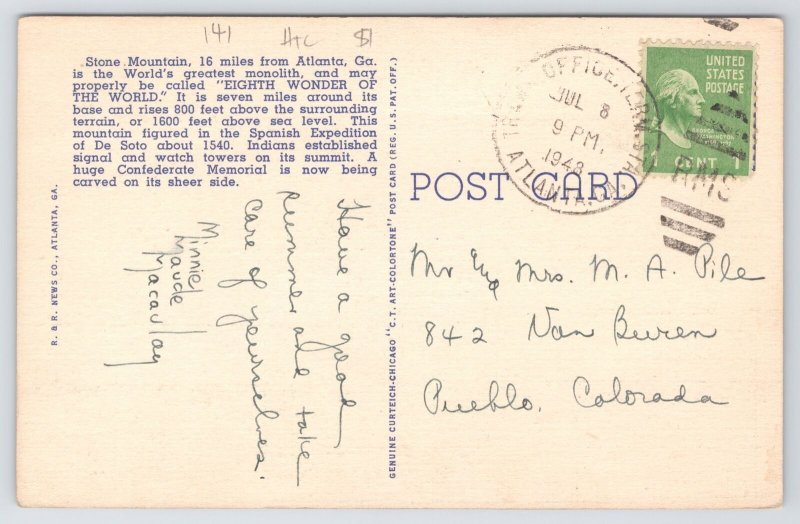 141 H+C $1
Stone Mountain, 16 miles from Atlanta, Ga.
is the World's greatest monolith, and may
properly be called "EIGHTH WONDER OF
THE WORLD." It is seven miles around its
base and rises 800 feet above the surrounding
terrain, or 1600 feet above sea level. This
mountain figured in the Spanish Expedition
of De Soto about 1540. Indians established
signal and watch towers on its summit. A
huge Confederate Memorial is now being
carved on its sheer side.
Have a good
summer and take
care of yourselves.
Minnie
Maude
Macaulay
R. & R. NEWS CO., ATLANTA, GA.
GENUINE CURTEICH-CHICAGO "C.T. ART-COLORTONE" POST CARD (REG. U.S. PAT. OFF.)
POST CARD
JUL 8
9 PM.
1948
ATLANTA, GA.
UNITED
STATES
POSTAGE
GEORGE
WASHINGTON
1 CENT 1
RMS
Mr and Mrs. M. A. Pile
842 Van Buren
Pueblo, Colorada